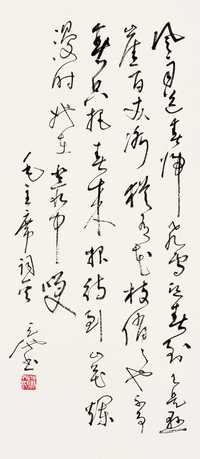 风雨送春归飞雪迎春到已是悬
崖百丈冰犹有花枝俏俏也不争
春只把春来报待到山花烂
漫时她在丛中笑
毛主席词
书